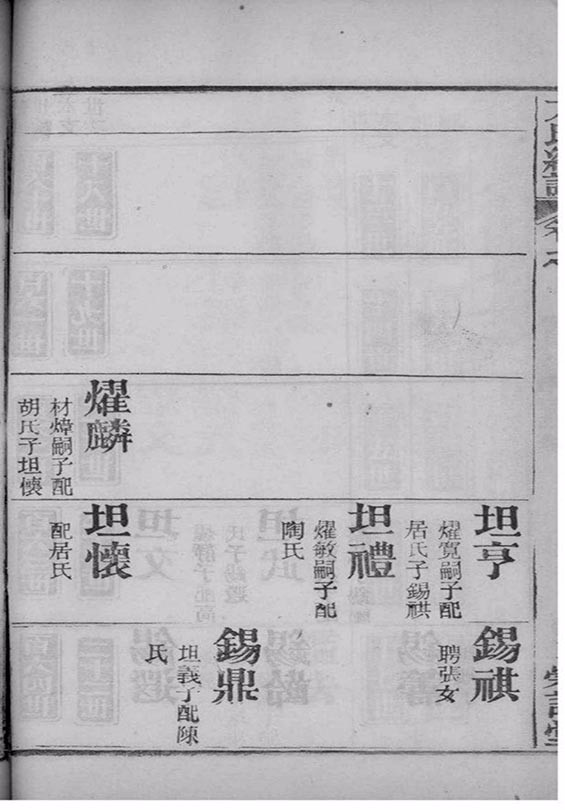 氏統譜
坦亨
燿寬嗣子配
居氏子錫祺
錫祺
聘張女
坦禮
燿敏嗣子配
陶氏
錫鼎
坦義子配陳
氏
燿麟
材煒嗣子配
胡氏子坦懷
坦懷
配居氏